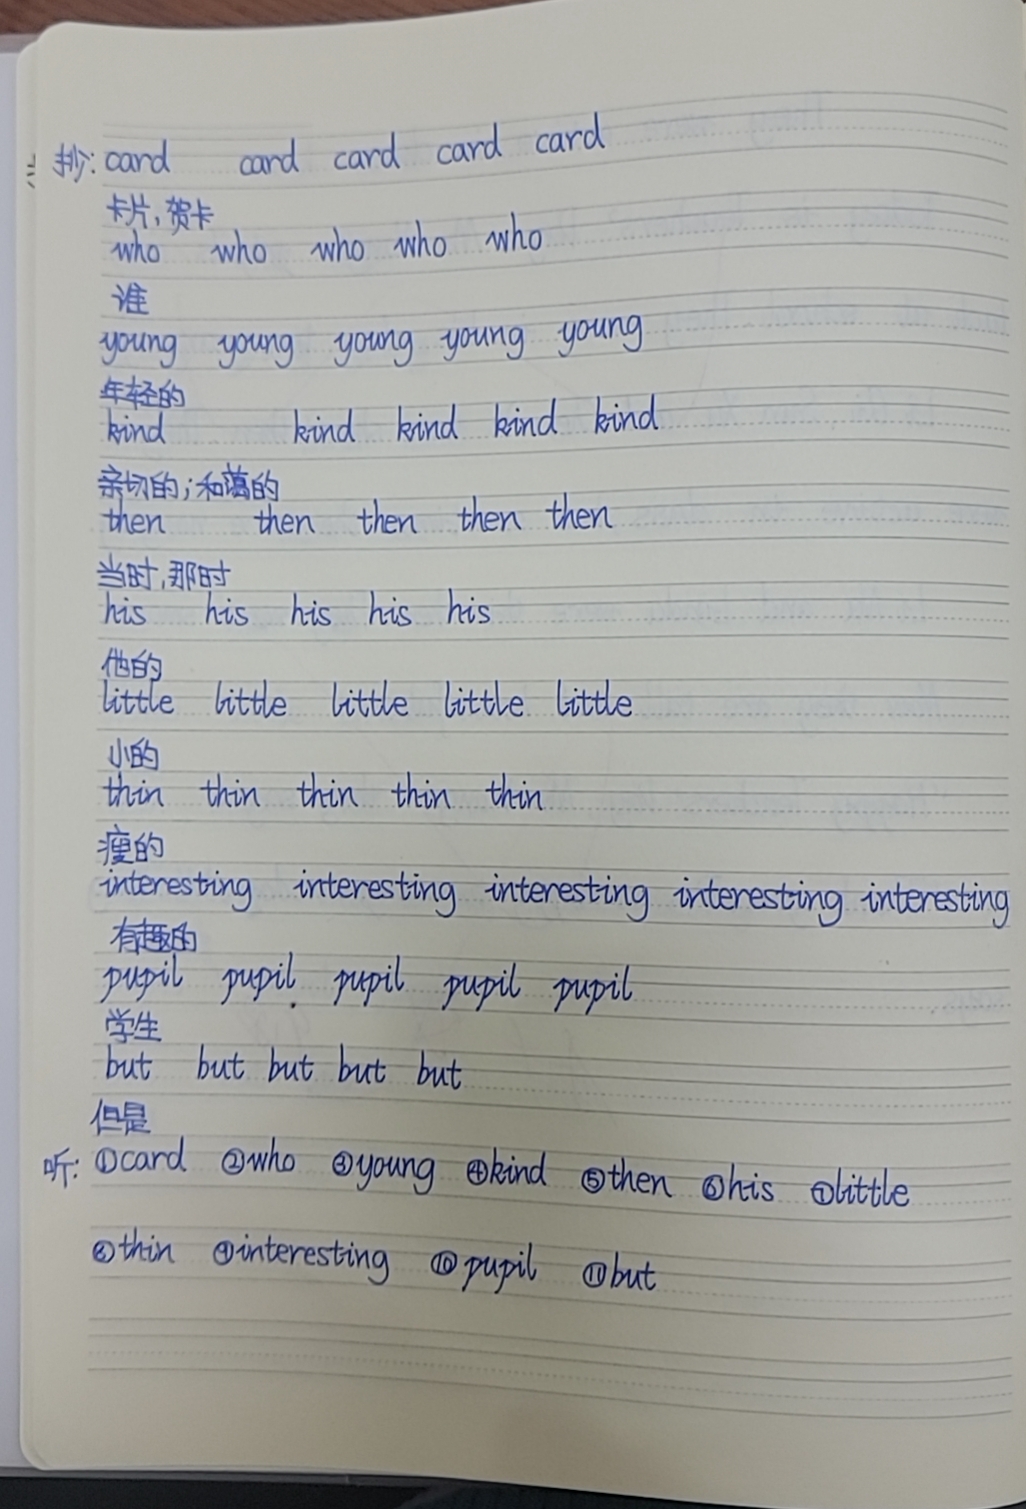 抄: card card card card card
卡片,贺卡
who who who who who
谁
young young young young young
年轻的
kind kind kind kind kind
亲切的;和蔼的
then then then then then
当时,那时
his his his his his
他的
little little little little little
小的
thin thin thin thin thin
瘦的
interesting interesting interesting interesting interesting
有趣的
pupil pupil pupil pupil pupil
学生
but but but but but
但是
听: ①card ②who ③young ④kind ⑤then ⑥his ⑦little
⑧thin ⑨interesting ⑩pupil ⑪but